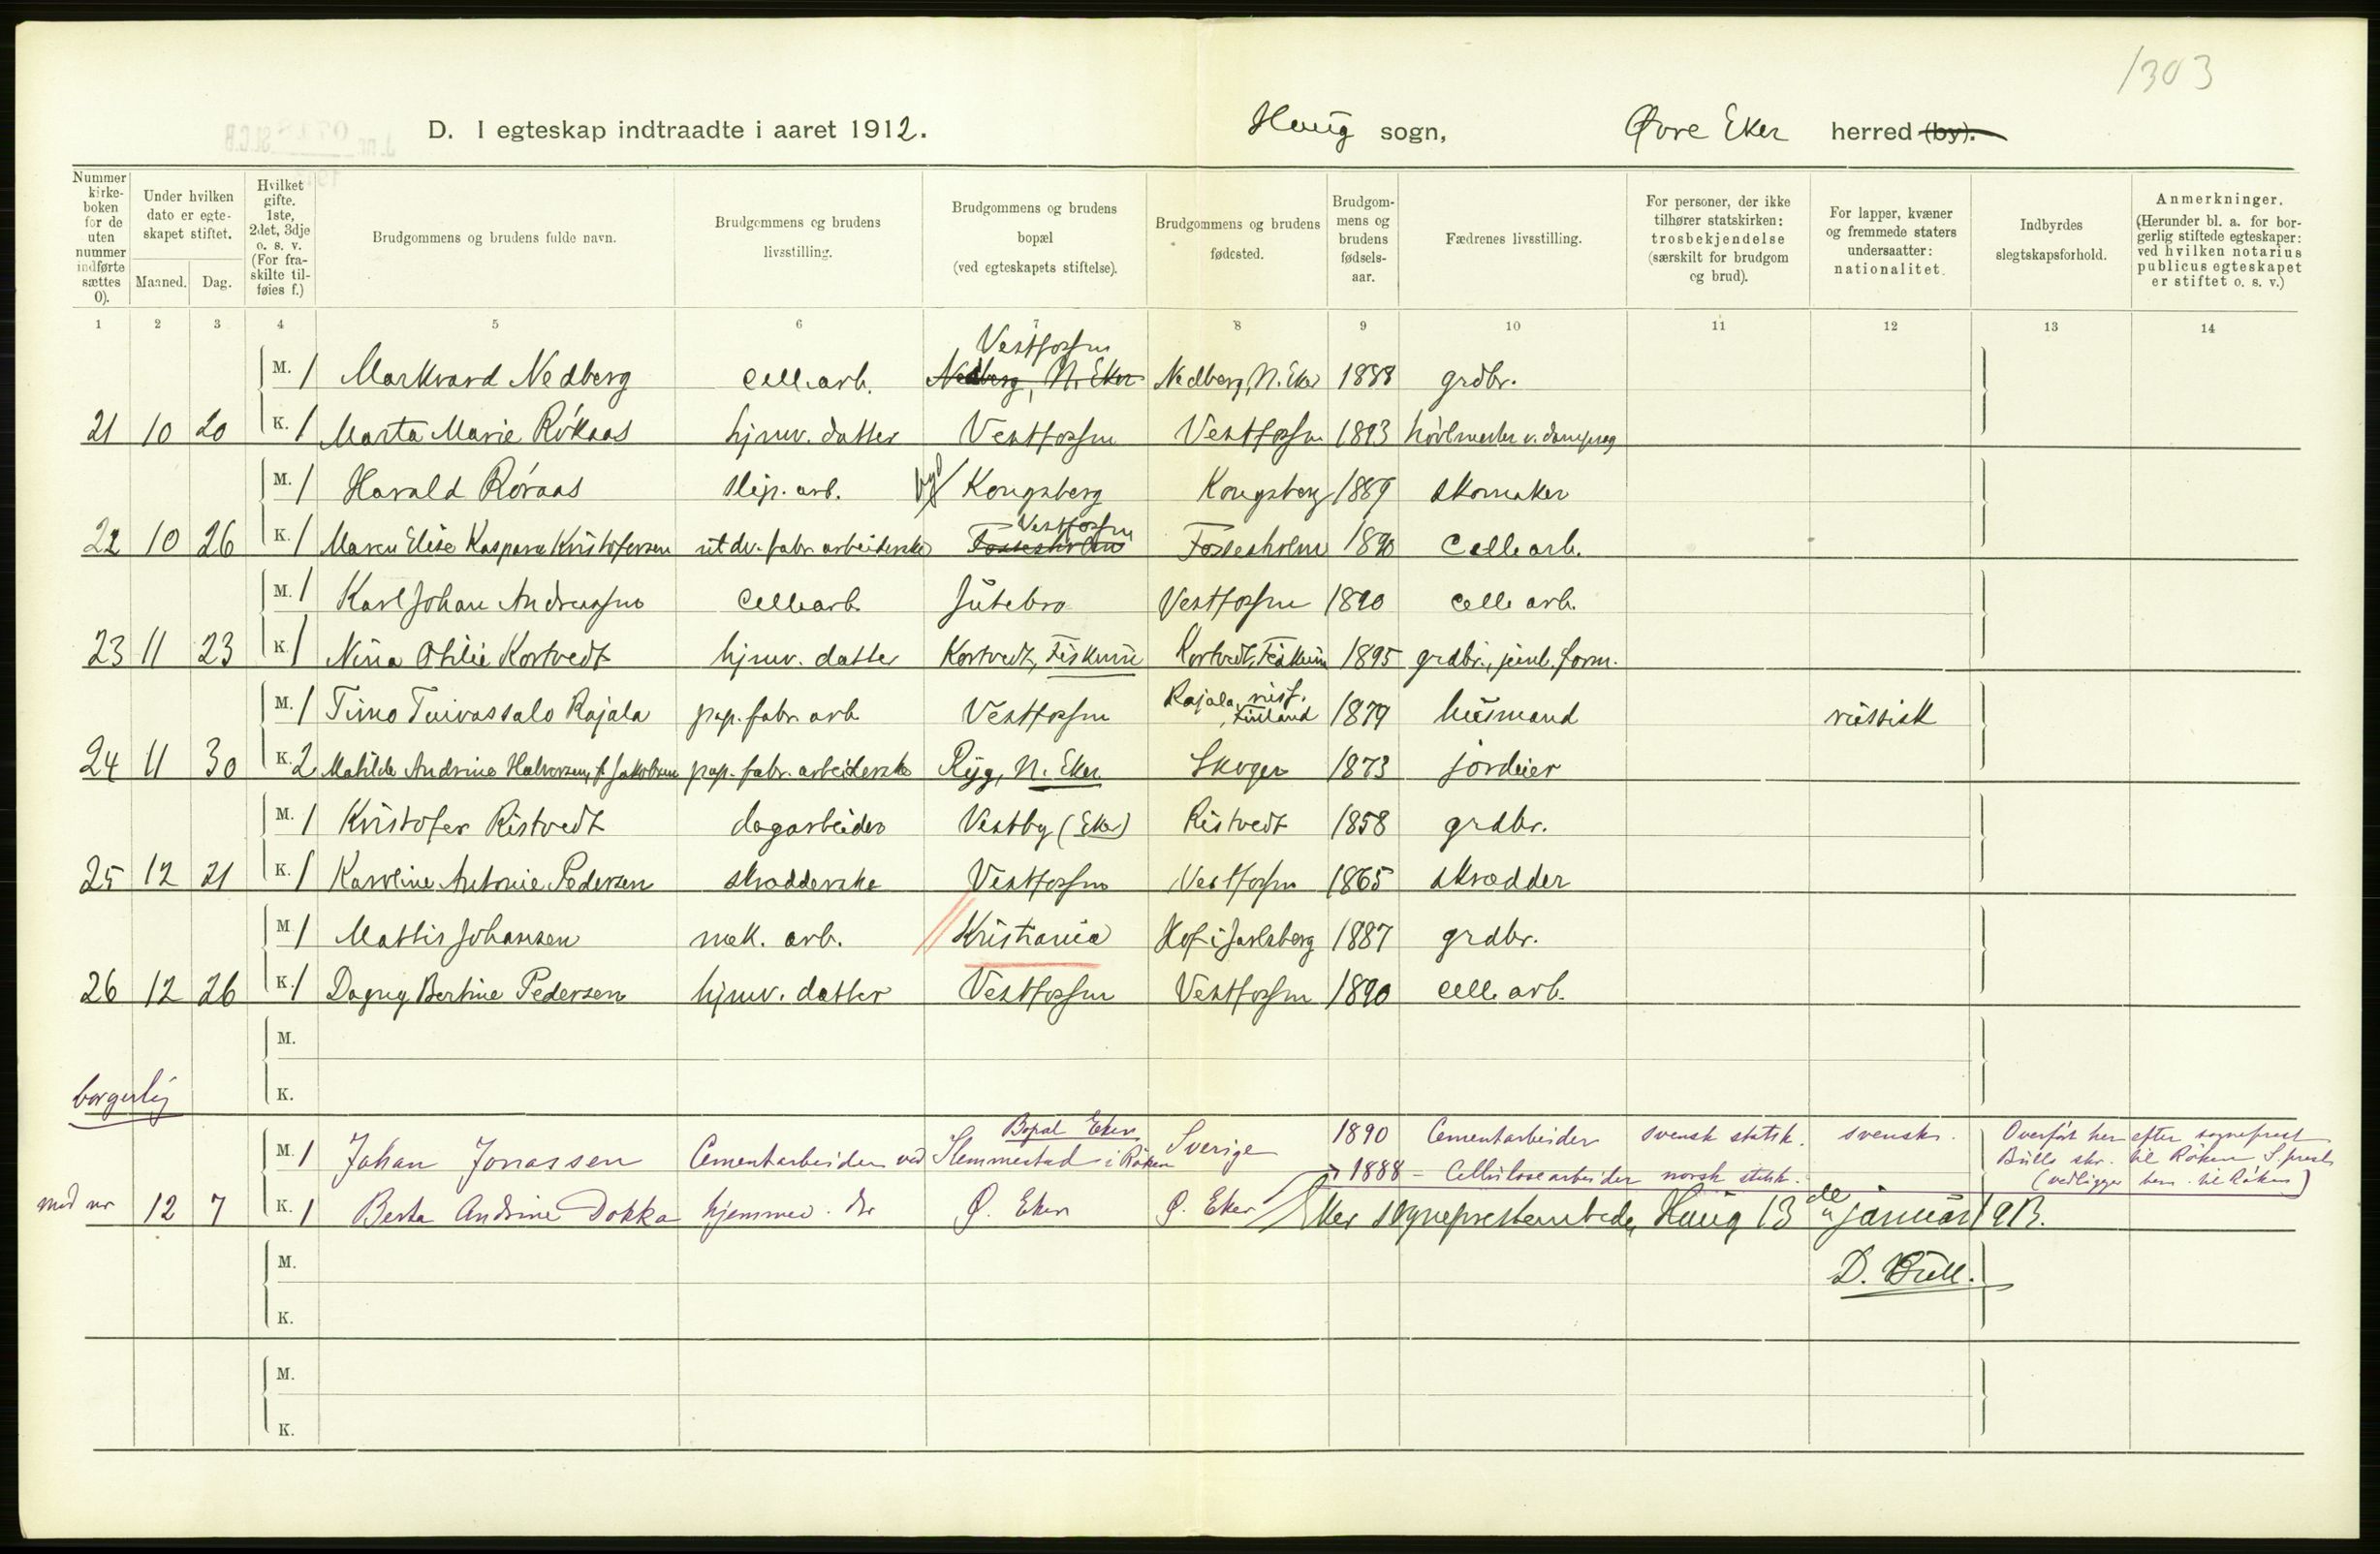 1303
D. I egteskap indtraadte i aaret 1912. Haug sogn, Øvre Eker herred (by).
Nummer kirkeboken for de uten nummer indførte sættes 0).
Under hvilken dato er egteskapet stiftet.
Maaned. Dag.
Hvilket gifte. 1ste, 2det, 3dje o. s. v. (For fraskilte tilføies f.)
Brudgommens og brudens fulde navn.
Brudgommens og brudens livsstilling.
Brudgommens og brudens bopæl (ved egteskapets stiftelse).
Brudgommens og brudens fødested.
Brudgommens og brudens fødselsaar.
Fædrenes livsstilling.
For personer, der ikke tilhører statskirken: trosbekjendelse (særskilt for brudgom og brud).
For lapper, kvæner og fremmede staters undersaatter: nationalitet.
Indbyrdes slegtskapsforhold.
Anmerkninger. (Herunder bl. a. for borgerlig stiftede egteskaper: ved hvilken notarius publicus egteskapet er stiftet o. s. v.)
1 2 3 4 5 6 7 8 9 10 11 12 13 14
Vestfossen
M. 1 Markvard Nedberg cell. arb. Nedberg, N. Eker Nedberg, N. Eker 1888 grdbr.
21 10 20 K. 1 Marta Marie Rökaas hjmv. datter Vestfossen Vestfossen 1893 hövlmester v. dampsag
M. 1 Harald Röraas slip. arb. Kongsberg Kongsberg 1889 skomaker
Vestfossen
22 10 26 K. 1 Maren Elise Kaspara Kristofersen utdv. fabr. arbeiderske Fossesholm Fossesholm 1890 Cell. arb.
M. 1 Karl Johan Andreassen Cell. arb. Jutebro Vestfossen 1890 cell. arb.
23 11 23 K. 1 Nina Otilie Kortvedt hjmv. datter Kortvedt, Fiskum Kortvedt, Fiskum 1895 grdbr., form.
M. 1 Timo Tuivassalo Rajala pap. fabr. arb. Vestfossen Rajala, russ. Finland 1879 husmand russisk
24 11 30 K. 2 Matilde Andrine Halvorsen, f. Jakobsen pap. fabr. arbeiderske Ryg, N. Eker Skoger 1873 jordeier
M. 1 Kristofer Ristvedt dagarbeider Vestby (Eker) Ristvedt 1858 grdbr.
25 12 21 K. 1 Karoline Antonie Pedersen skrædderske Vestfossen Vestfossen 1865 skrædder
M. 1 Mattis Johansen mek. arb. Kristiania Hof i Jarlsberg 1887 grdbr.
26 12 26 K. 1 Dagny Bertine Pedersen hjmv. datter Vestfossen Vestfossen 1890 cell. arb.
M.
borgerlig K.
Bopæl Eker
M. 1 Johan Jonassen Cementarbeider ved Slemmestad i Röken Sverige 1890 Cementarbeider svensk statsk. svensk. Overført her efter sogneprest
1888 – Cellulosearbeider norsk statsk. Bulls skr. til Röken S.prest
(vedligger tem. til Röken)
med nr 12 7 K. 1 Berta Andrine Dokka hjemmev. dtr Ø. Eker Ø. Eker
Eker sogneprestembede, Haug 13de januar 1913.
M. D. Bull.
K.
M.
K.